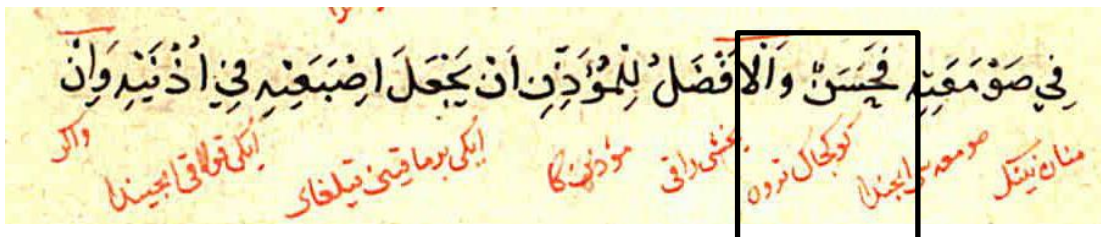 فِي صَوْمَعَتِهِ فَحَسَنٌ وَالْاَفْضَلُ لِلْمُؤَذِّنِ اَنْ يَجْعَلَ اِصْبَعَيْهِ فِي اُذُنَيْهِ وَاِنْ
صومعه سى ايجندا كوكجاك ترور يخشى راقى مؤذن كا ايكى برماقينى قيلغاى ايكى قولاقى ايجيندا واكر